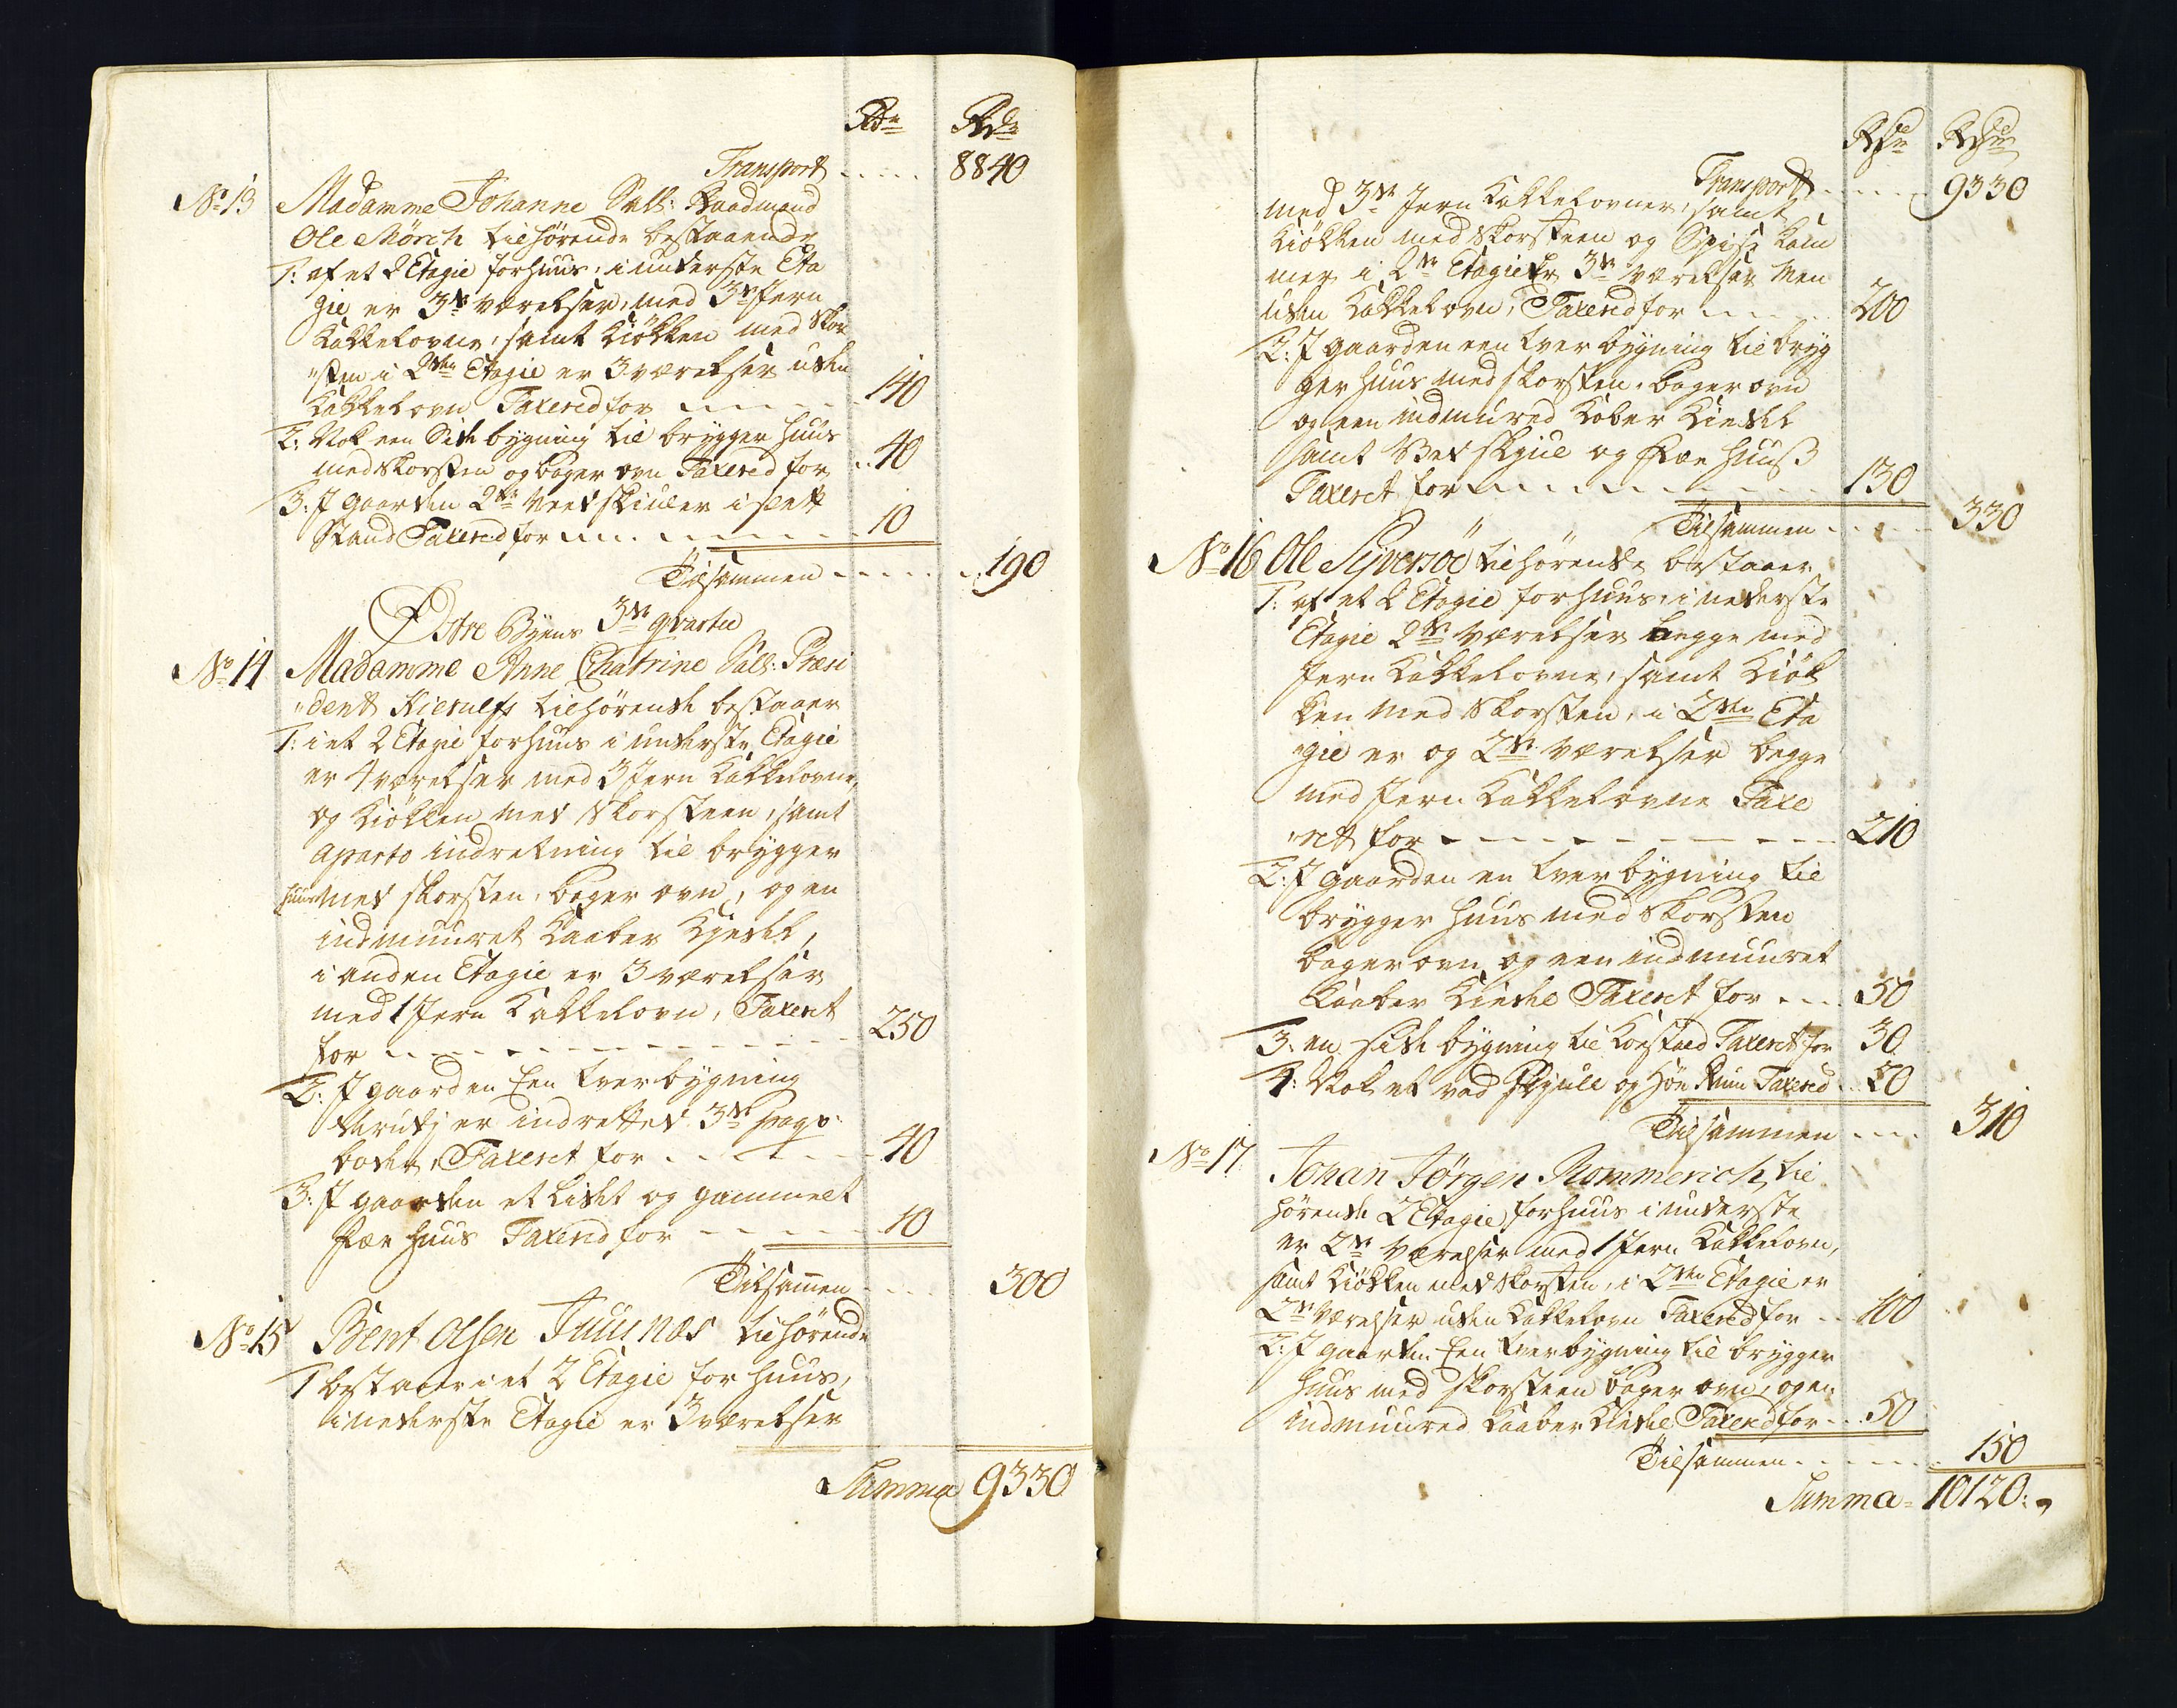 Rdr Rdr
Transport ..... 8840
No 13 Madamme Johanne Sall: Raadmand
Ole Mörch tilhörende bestaaende
1: af et 2 Etagie forhuus, i underste Eta
gie er 3de værelser, med 3de Jern
Kakkelovne, samt Kiökken med Skor
"sten i 2den Etagie er 3 værelser uden
Kakkelovn Taxered for ..... 140
2: Nok een Side bygning til brygger huus
med Skorsten og bager ovn Taxered for .. 40
3: I gaarden 2de Vedskiuler i slett
Stand Taxered for ..... 10
Tilsammen ..... 190
Østre Byens 3de qvarteel
No 14 Madamme Anne Chatrine Sall: Præsi
"dent Kierulfs tilhörende bestaaer
1: i et 2 Etagie forhuus i underste Etagie
er 4 værelser med 3 Jern Kakkelovne,
og Kiökken med Skorsteen, samt
aparto indretning til brygger
huus med skorsten, bager ovn, og en
indmuuret Kaaber Kjedel,
i anden Etagie er 3 værelser
med 1 Jern Kakkelovn, Taxeret
for ..... 250
2: I gaarden Een tver bygning
derudj er indrettet 3de
boder, Taxeret for ..... 40
3: I gaarden et lidet og gammelt
Fæe huus Taxerid for ..... 10
Tilsamen .... 300
No 15 Bent Olsen Juunæs tilhörende
1 bestaaer i et 2 Etagie for huus,
i nederste Etagie er 3 værelser
Summa 9330
Rdr Rdr
Transport ..... 9330
med 3de Jern Kakkelovner, samt
Kiökken med Skorsteen og Spise Kam
mer i 2den Etagie Er 3de værelser Men
uden Kakkelovn, Taxerid for ..... 200
2: I gaarden een tver bygning til bryg
ger huus med skorsten, bager ovn
og een indmured Kober Kiedel
samt Ved skjul og Fæe huuß
Taxeret for ..... 130
Tilsammen ..... 330
No 16 Ole Syversöe tilhörende bestaaer
1: af et 2 Etagie forhuus, i nederste
Etagie 2de værelser begge med
Jern Kakkelovne, samt Kiök
ken med Skorsten, i 2den Eta
"gie er og 2de værelser begge
med Jern Kakkelovne Taxe
"rett for ..... 210
2: I gaarden en tver bygning til
brygger huus med Skorsten
bager ovn og een indmuuret
Kaaber Kiedel Taxeret for ... 50
3: en side bygning til Koestald Taxeret for 30
4: Nok et ved skjule og Höe Rum Taxered .. 20
Tilsammen .... 310
No 17. Johan Jörgen Rommerich, til
hörende 2 Etagie forhuus i underste
er 2de Værelser med 1 Jern Kakkelovn,
samt Kiökken med skorsten, i 2den Etagie er
2de Værelser uden Kakkelovn Taxered for .. 100
2: I gaarden Een tver bygning til brygger
huus med skorsteen bager ovn, og en
indmuured Kaaber Kiedel Taxerid for .. 50
Tilsammen ..... 150
Summa = 10120: